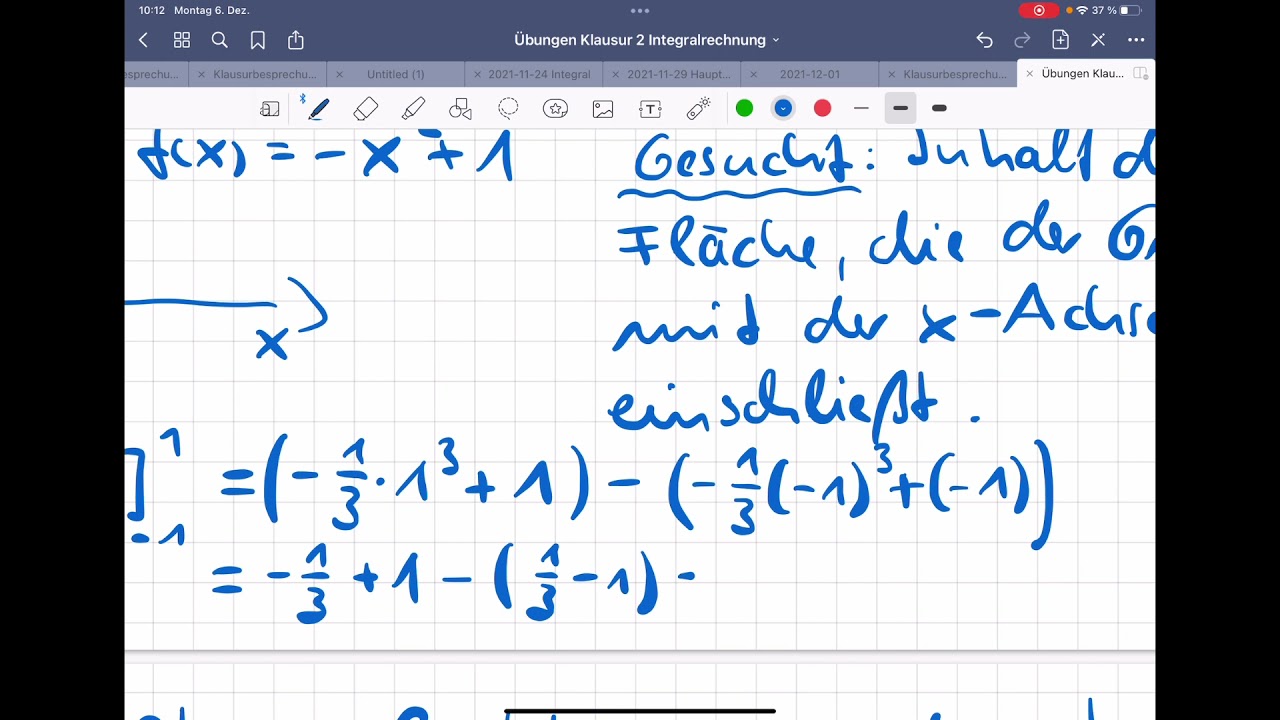 10:12 Montag 6. Dez. 37 %
Übungen Klausur 2 Integralrechnung
esprechu... Klausurbesprechu... Untitled (1) 2021-11-24 Integral 2021-11-29 Haupt... 2021-12-01 Klausurbesprechu... Übungen Klau...
f(x) = -x² + 1
Gesucht: Inhalt d
Fläche, die der G
mit der x-Achse
einschließt.
x
]¹₋₁ = (-1/3 · 1³ + 1) - (-1/3 (-1)³ + (-1))
= -1/3 + 1 - (1/3 - 1) -